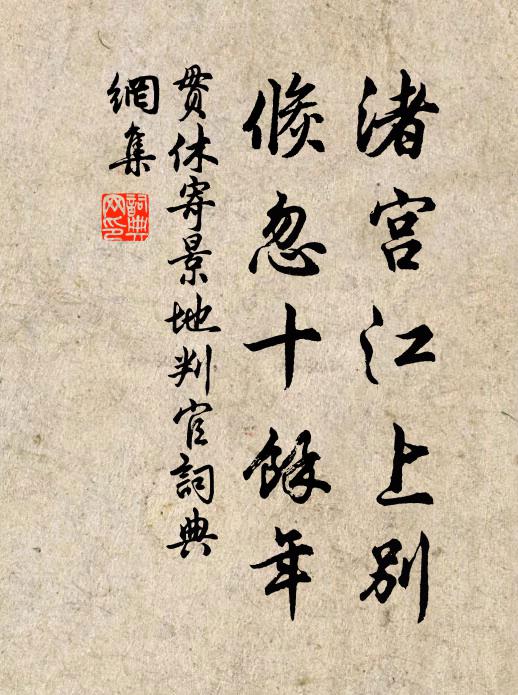 渚宫江上别
倏忽十餘年
贯休寄景地判官詞典
網集
詞典
网印